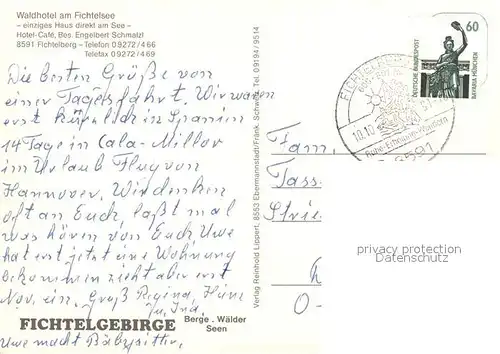 Waldhotel am Fichtelsee
– einziges Haus direkt am See –
Hotel-Café, Bes. Engelbert Schmatzl
8591 Fichtelberg – Telefon 09272/466
Telefax 09272/469
Die besten Grüße von
einer Tagesfahrt. Wir waren
erst kürzlich in Spanien
14 Tage in Cala-Millor
im Urlaub Flug von
Hannover. Wir denken
oft an Euch, laßt mal
was hören von Euch Uwe
hat erst jetzt eine Wohnung
bekommen zieht aber erst
Nov. ein. Gruß Regina,
Uwe macht Babysitter,
FICHTELGEBIRGE
Berge . Wälder
Seen
Verlag Reinhold Lippert, 8553 Ebermannstadt/Fränk. Schweiz, Tel. 09194/9514
60
DEUTSCHE BUNDESPOST
BAVARIA MÜNCHEN
10.10
Ruhe-Erholung-Wandern
8591
Fam.
Tass
O-
privacy protection
Datenschutz